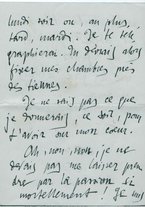 lundi soir ou, au plus
tard, mardi. Je te télé-
graphierai. Tu devrais alors
fixer mes chambres près
des tiennes.
Je ne sais pas ce que
je donnerais, ce soir, pour
t'avoir sur mon cœur.
Oh, non, non, je ne
devais pas me laisser pren-
dre par la passion si
mortellement ! Je